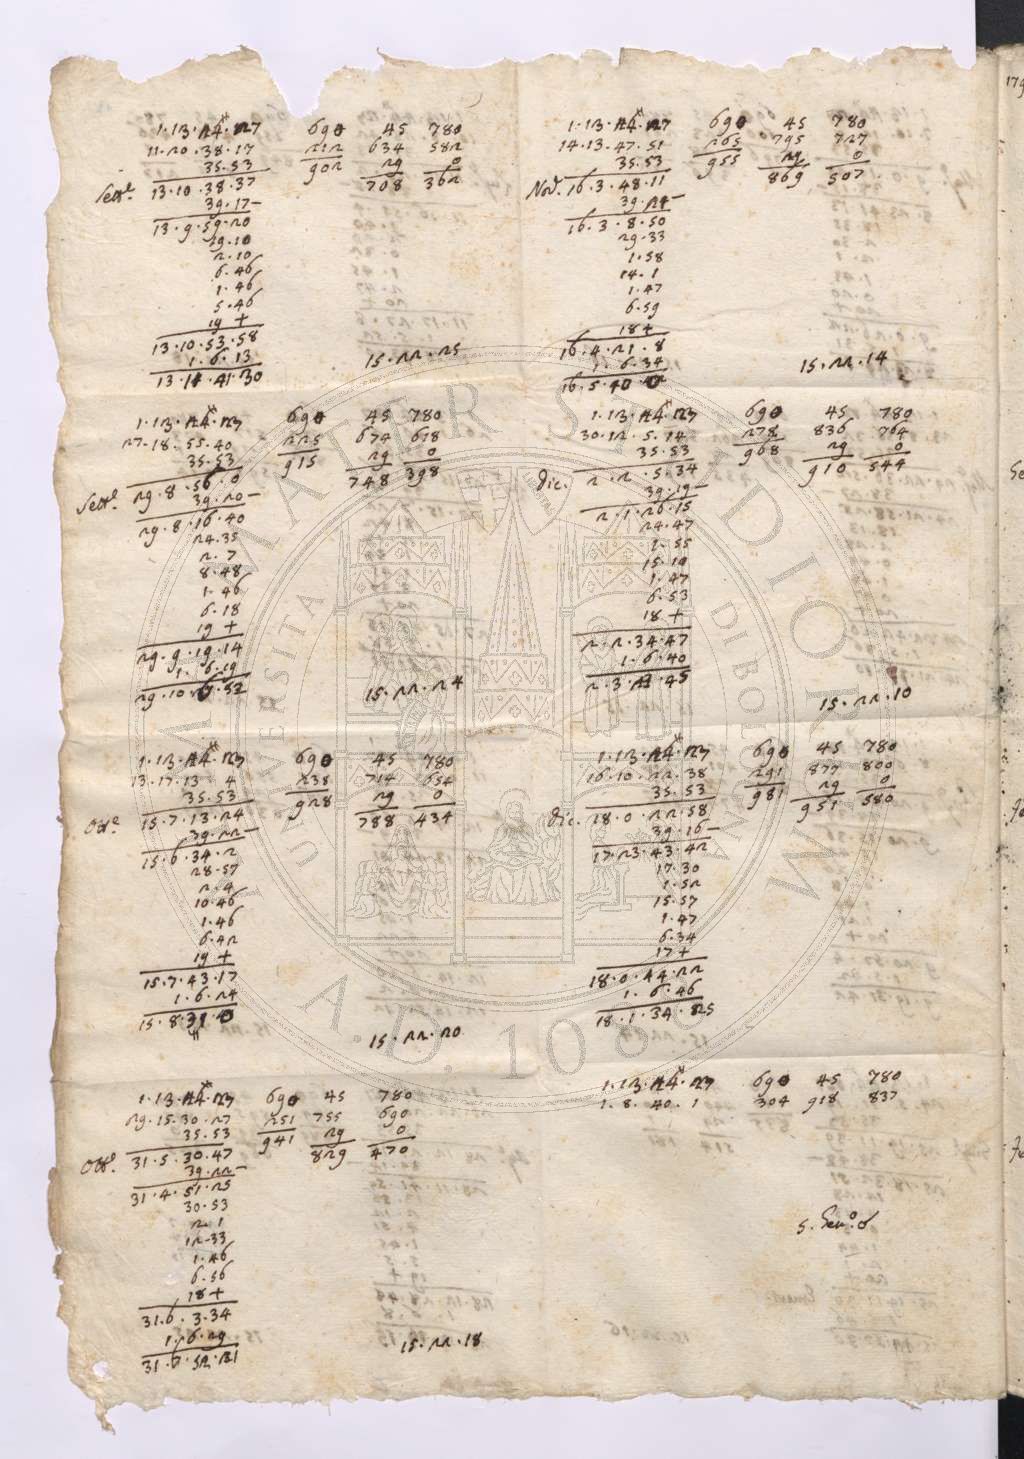 1·13·24·27 690 45 780
11·20·38·17 212 634 582
35·53 902 29 0
Sett.e 13·10·38·37 708 362
39·17–
13·9·59·20
19·10
2·10
6·46
1·46
5·46
19 +
13·10·53·58
1·6·13
13·11·41·30 15·22·25
1·13·24·27 690 45 780
27·18·55·40 225 674 618
35·53 915 29 0
Sett.e 29·8·56·0 748 398
39·20–
29·8·16·40
24·35
2·7
8·48
1·46
6·18
19 +
29·9·19·14
1·6·19
15·22·24
1·13·24·27 690 45 780
13·17·13·4 238 714 654
35·53 928 29 0
Ott.e 15·7·13·24 788 434
39·22–
15·6·34·2
28·57
2·4
10·46
1·46
6·42
19 +
15·7·43·17
1·6·24
15·8·31·0 15·22·20
1·13·24·27 690 45 780
29·15·30·27 251 755 690
35·53 941 29 0
Ott.e 31·5·30·47 829 470
39·22–
31·4·51·25
30·53
2·1
12·33
1·46
6·56
18 +
31·6·3·34
1·6·29
31·7·52·21 15·22·18
1·13·24·27 690 45 780
14·13·47·51 265 795 727
35·53 955 29 0
Nov. 16·3·48·11 869 507
39·24–
16·3·8·50
29·33
1·58
14·1
1·47
6·59
18 +
16·4·21·8
1·6·34
16·5·40·2 15·22·14
1·13·24·27 690 45 780
30·12·5·14 278 836 764
35·53 968 29 0
Dic. 2·2·5·34 910 544
39·19–
2·1·26·15
24·47
1·55
15·10
1·47
6·53
18 +
2·2·34·47
1·6·40
15·22·10
1·13·24·27 690 45 780
16·10·22·38 291 877 800
35·53 981 29 0
Dic. 18·0·22·58 951 580
39·16–
17·23·43·42
17·30
1·52
15·57
1·47
6·34
17 +
18·0·44·22
1·6·46
18·1·34·25
1·13·24·27 690 45 780
1·8·40·1 304 918 837
ALMA MATER STUDIORUM
UNIVERSITÀ DI BOLOGNA
A.D. 1088